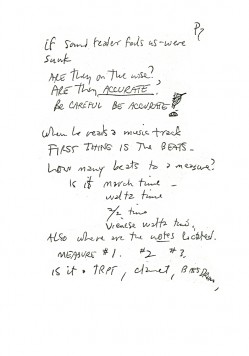 P7
if sound reader fails us - were
sunk
ARE they on the nose?,
ARE they ACCURATE.
Be CAREFUL BE ACCURATE!
when he reads a music track
FIRST THING IS THE BEATS -
how many beats to a measure?
Is it march time -
waltz time
2/2 time
Vienese waltz time,
ALSO where are the notes located.
MEASURE #1. #2 #3,
is it a TRPT, clarinet, BASS DRUM,